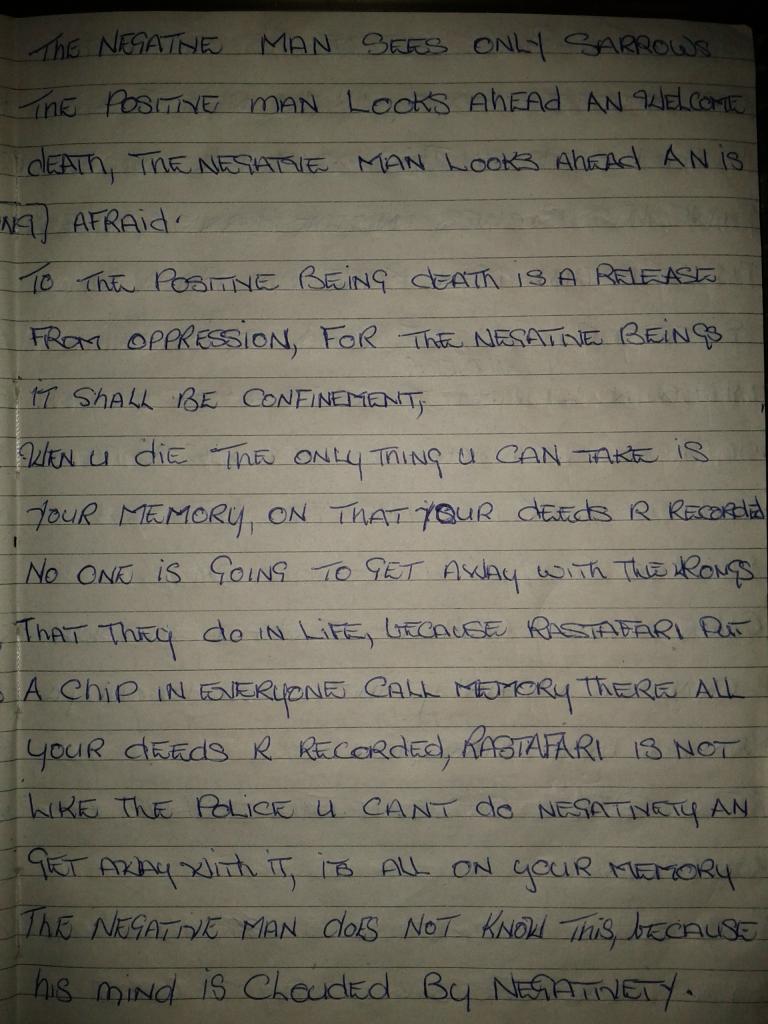 THE NEGATIVE MAN SEES ONLY SARROWS
THE POSITIVE MAN LOOKS AHEAD AN WELCOME
DEATH, THE NEGATIVE MAN LOOKS AHEAD AN IS
NG] AFRAID.
TO THE POSITIVE BEING DEATH IS A RELEASE
FROM OPPRESSION, FOR THE NEGATIVE BEINGS
IT SHALL BE CONFINEMENT,
WEN U DIE THE ONLY THING U CAN TAKE IS
YOUR MEMORY, ON THAT YOUR DEEDS R RECORDED
NO ONE IS GOING TO GET AWAY WITH THE WRONGS
THAT THEY DO IN LIFE, BECAUSE RASTAFARI PUT
A CHIP IN EVERYONE CALL MEMORY THERE ALL
YOUR DEEDS R RECORDED, RASTAFARI IS NOT
LIKE THE POLICE U CANT DO NEGATIVETY AN
GET AWAY WITH IT, ITS ALL ON YOUR MEMORY
THE NEGATIVE MAN DOES NOT KNOW THIS, BECAUSE
HIS MIND IS CLOUDED BY NEGATIVETY.